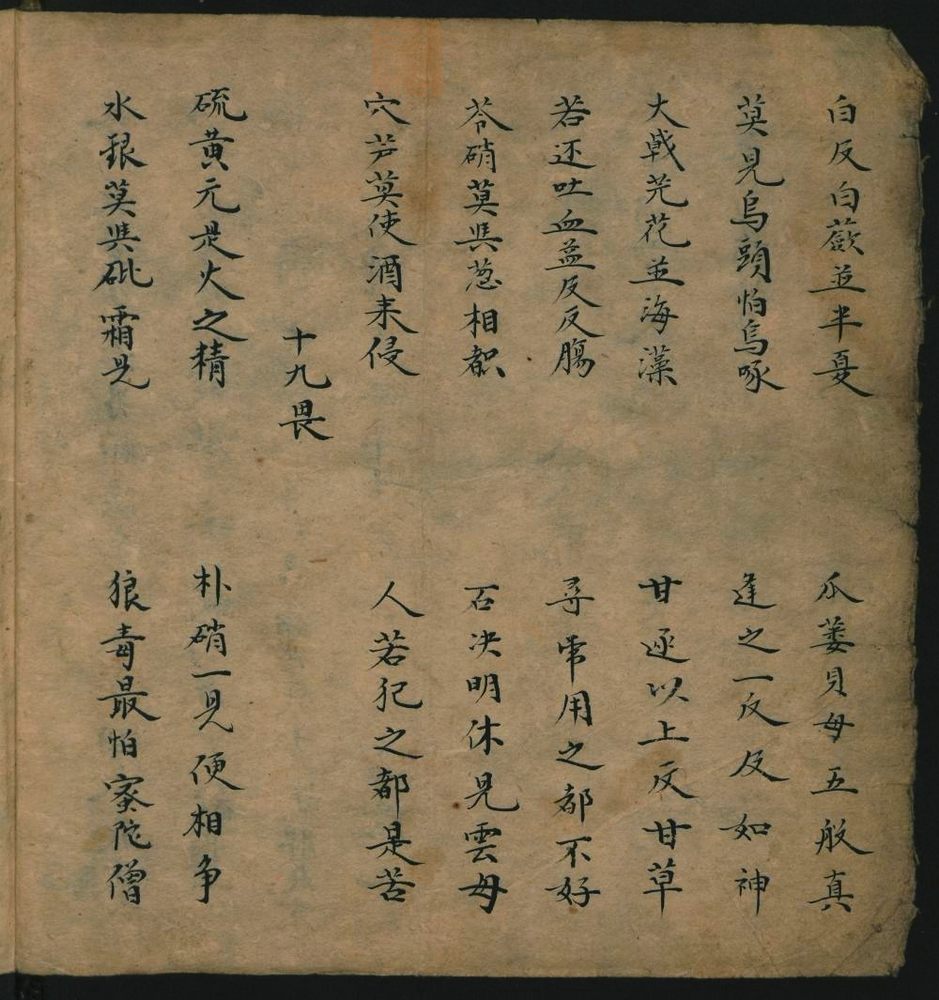 白反白蘞並半夏　瓜蔞貝母五般真
莫見烏頭怕烏啄　逢之一反反如神
大戟芫花並海藻　甘逐以上反甘草
若还吐血益反反腸　尋常用之都不好
苓硝莫與葱相　石决明休見雲母
穴芦莫使酒来侵　人若犯之都是苦
十九畏
硫黄元是火之精　朴硝一見便相争
水銀莫與砒霜見　狼毒最怕蜜陀僧